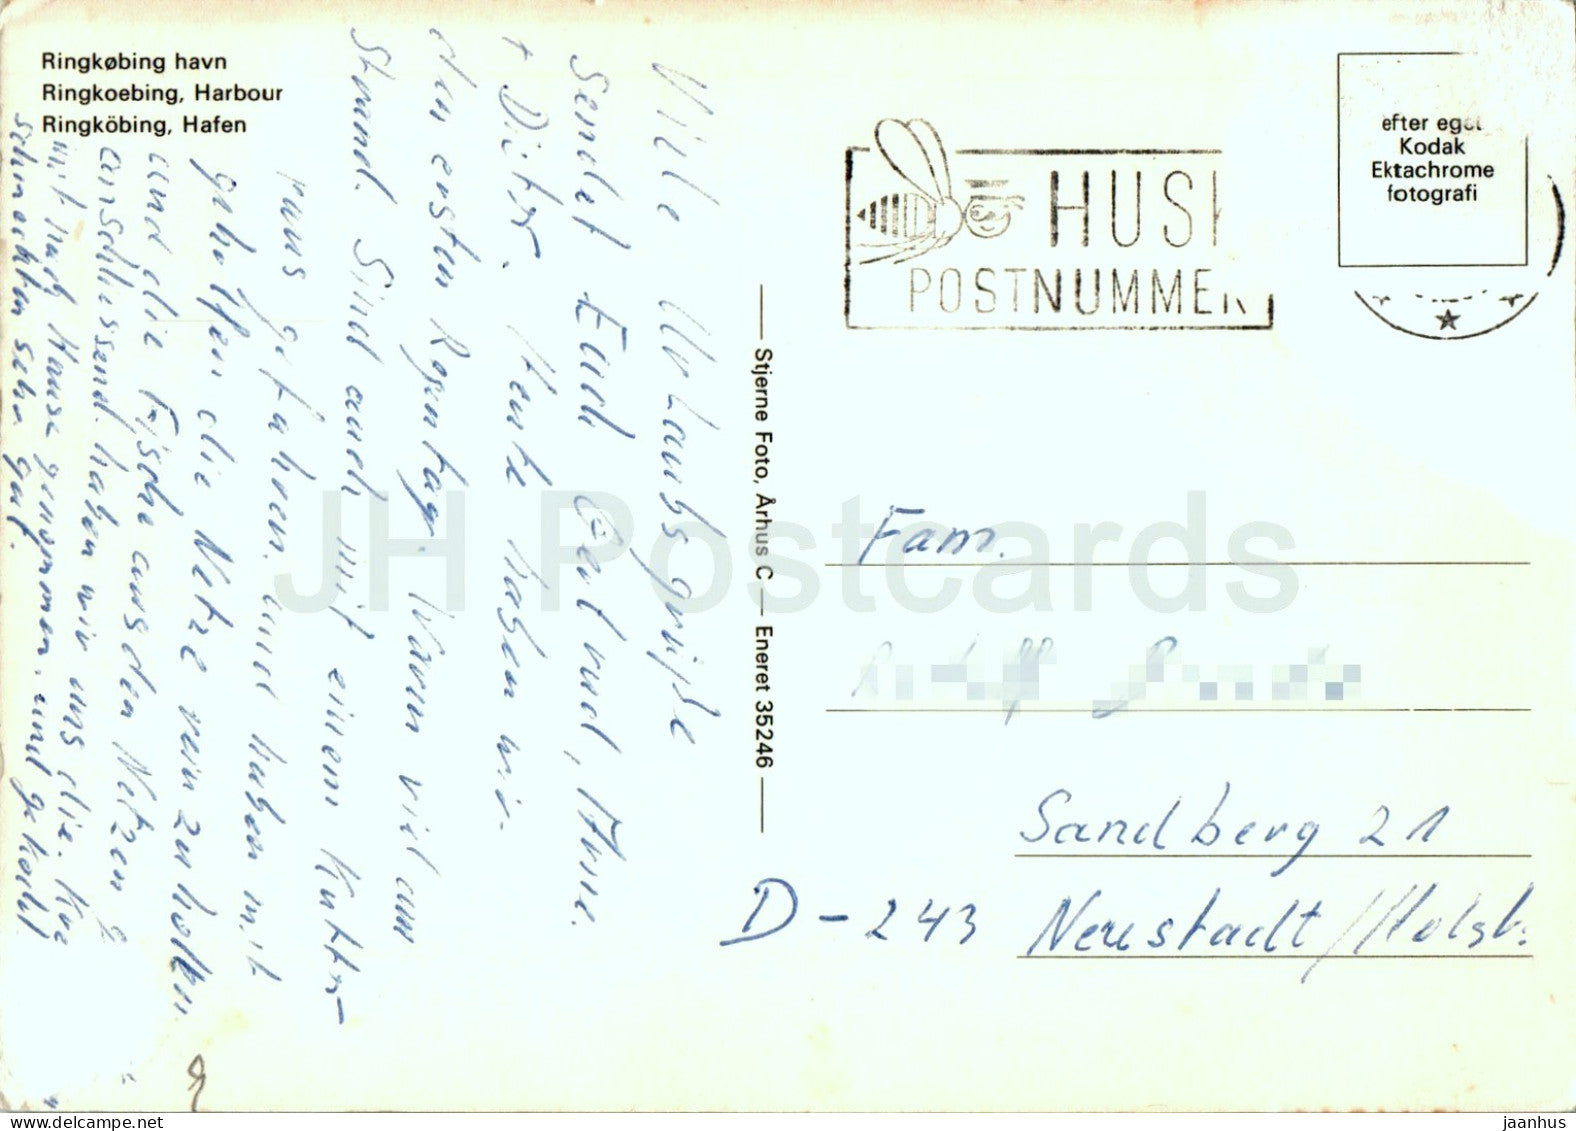 Ringkøbing havn
Ringkoebing, Harbour
Ringköbing, Hafen
Viele Urlaubsgrüße
sendet Euch Gertrud,
+ Dieter. Heute haben wir
den ersten Regentag. Waren viel am
Strand. Sind auch mit einem Kutter
raus gefahren und haben mit
geholfen die Netze rein zu holen
und die Fische aus den Netzen
anschliessend haben wir uns die
mit nach Hause genommen und gekocht
schmeckten sehr gut.
Stjerne Foto, Århus C — Eneret 35246
HUSK
POSTNUMMER
efter eget
Kodak
Ektachrome
fotografi
Fam.
Sandberg 21
D-243 Neustadt/Holst.
JH Postcards
delcampe.net
jaanhus